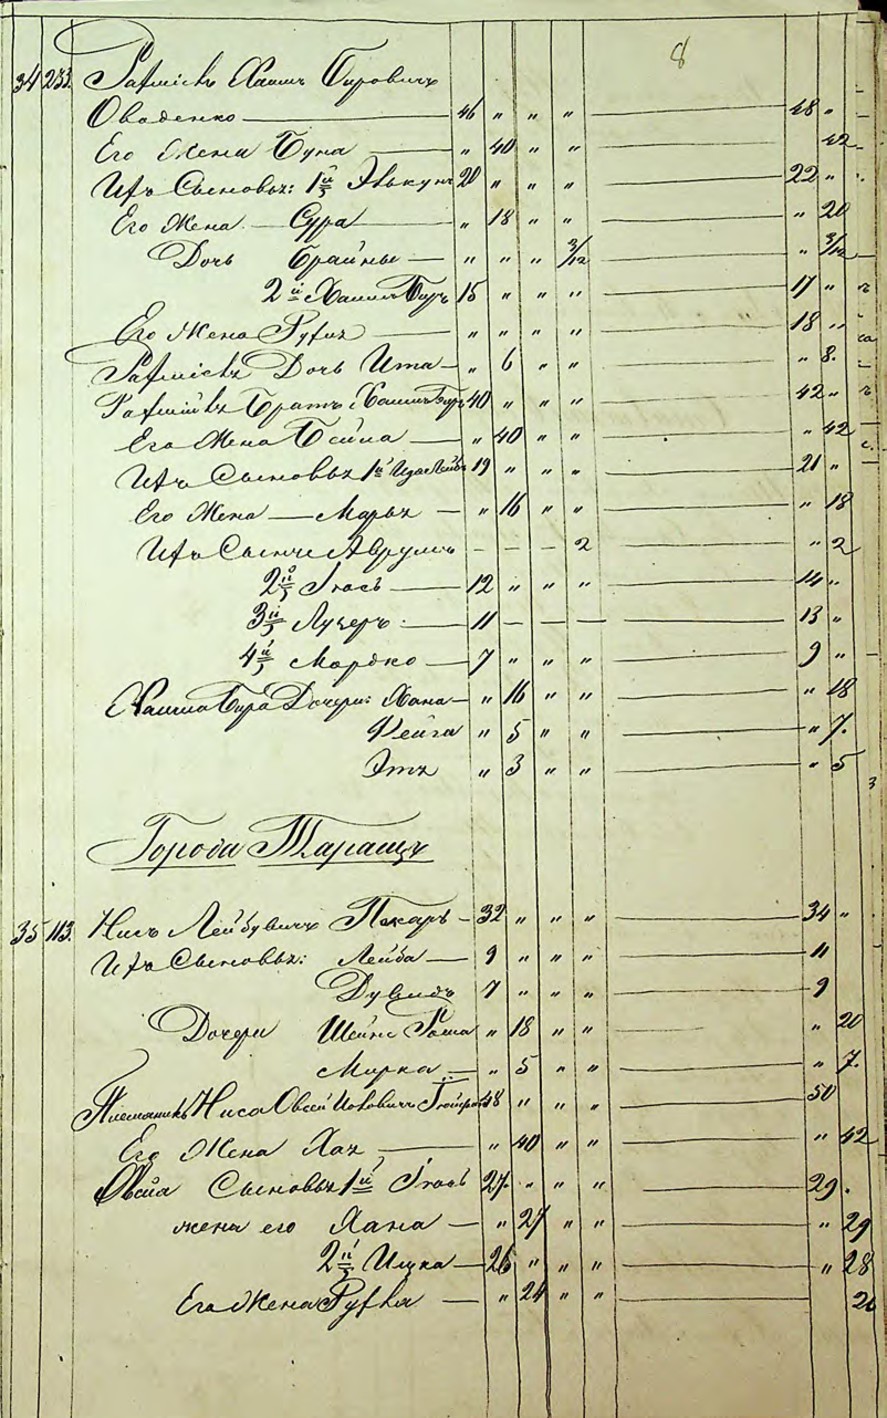 8
34 233. Хаимъ Бировичъ
Оваденко 46 " " " 48 "
Его Жена Буна " 40 " " 42
Ихъ Сыновья: 1й 20 " " " 22 "
Его Жена Сура " 18 " " " 20
Дочь Брайны " " " 3/12 " 3/12
2й Хаимъ Биръ 15 " " " 17 "
Его Жена " " " " 18 "
Дочь Ита " 6 " " " 8.
Братъ Хаимъ Биръ 40 " " " 42 "
Его Жена Бейла " 40 " " " 42
Ихъ Сыновья 1й 19 " " " 21 "
Его Жена Марья " 16 " " " 18
Ихъ Аврумъ - - - 2 " 2
2й Іось 12 " " " 14 "
3й Лузеръ 11 — — — 13 "
4й Мордко 7 " " " 9 "
Хаима Бира Дочери: Хана " 16 " " " 18
Фейга " 5 " " " 7.
Этя " 3 " " " 5
Города Таращи
35 113. Нисъ Лейбовичъ Пекаръ 32 " " " 34 "
Ихъ Сыновья: Лейба 9 " " " 11
Дувидъ 7 " " " 9
Дочери Шейне " 18 " " " 20
Мирка " 5 " " " 7.
Племянникъ Ниса Овсей 48 " " " 50
Его Жена Хая " 40 " " " 42
Овсея Сыновья 1й Іось 27. " " " 29.
жена его Хана " 27 " " " 29
2й Ицка 26 " " " " 28
Его Жена Руфля " 24 " " 26